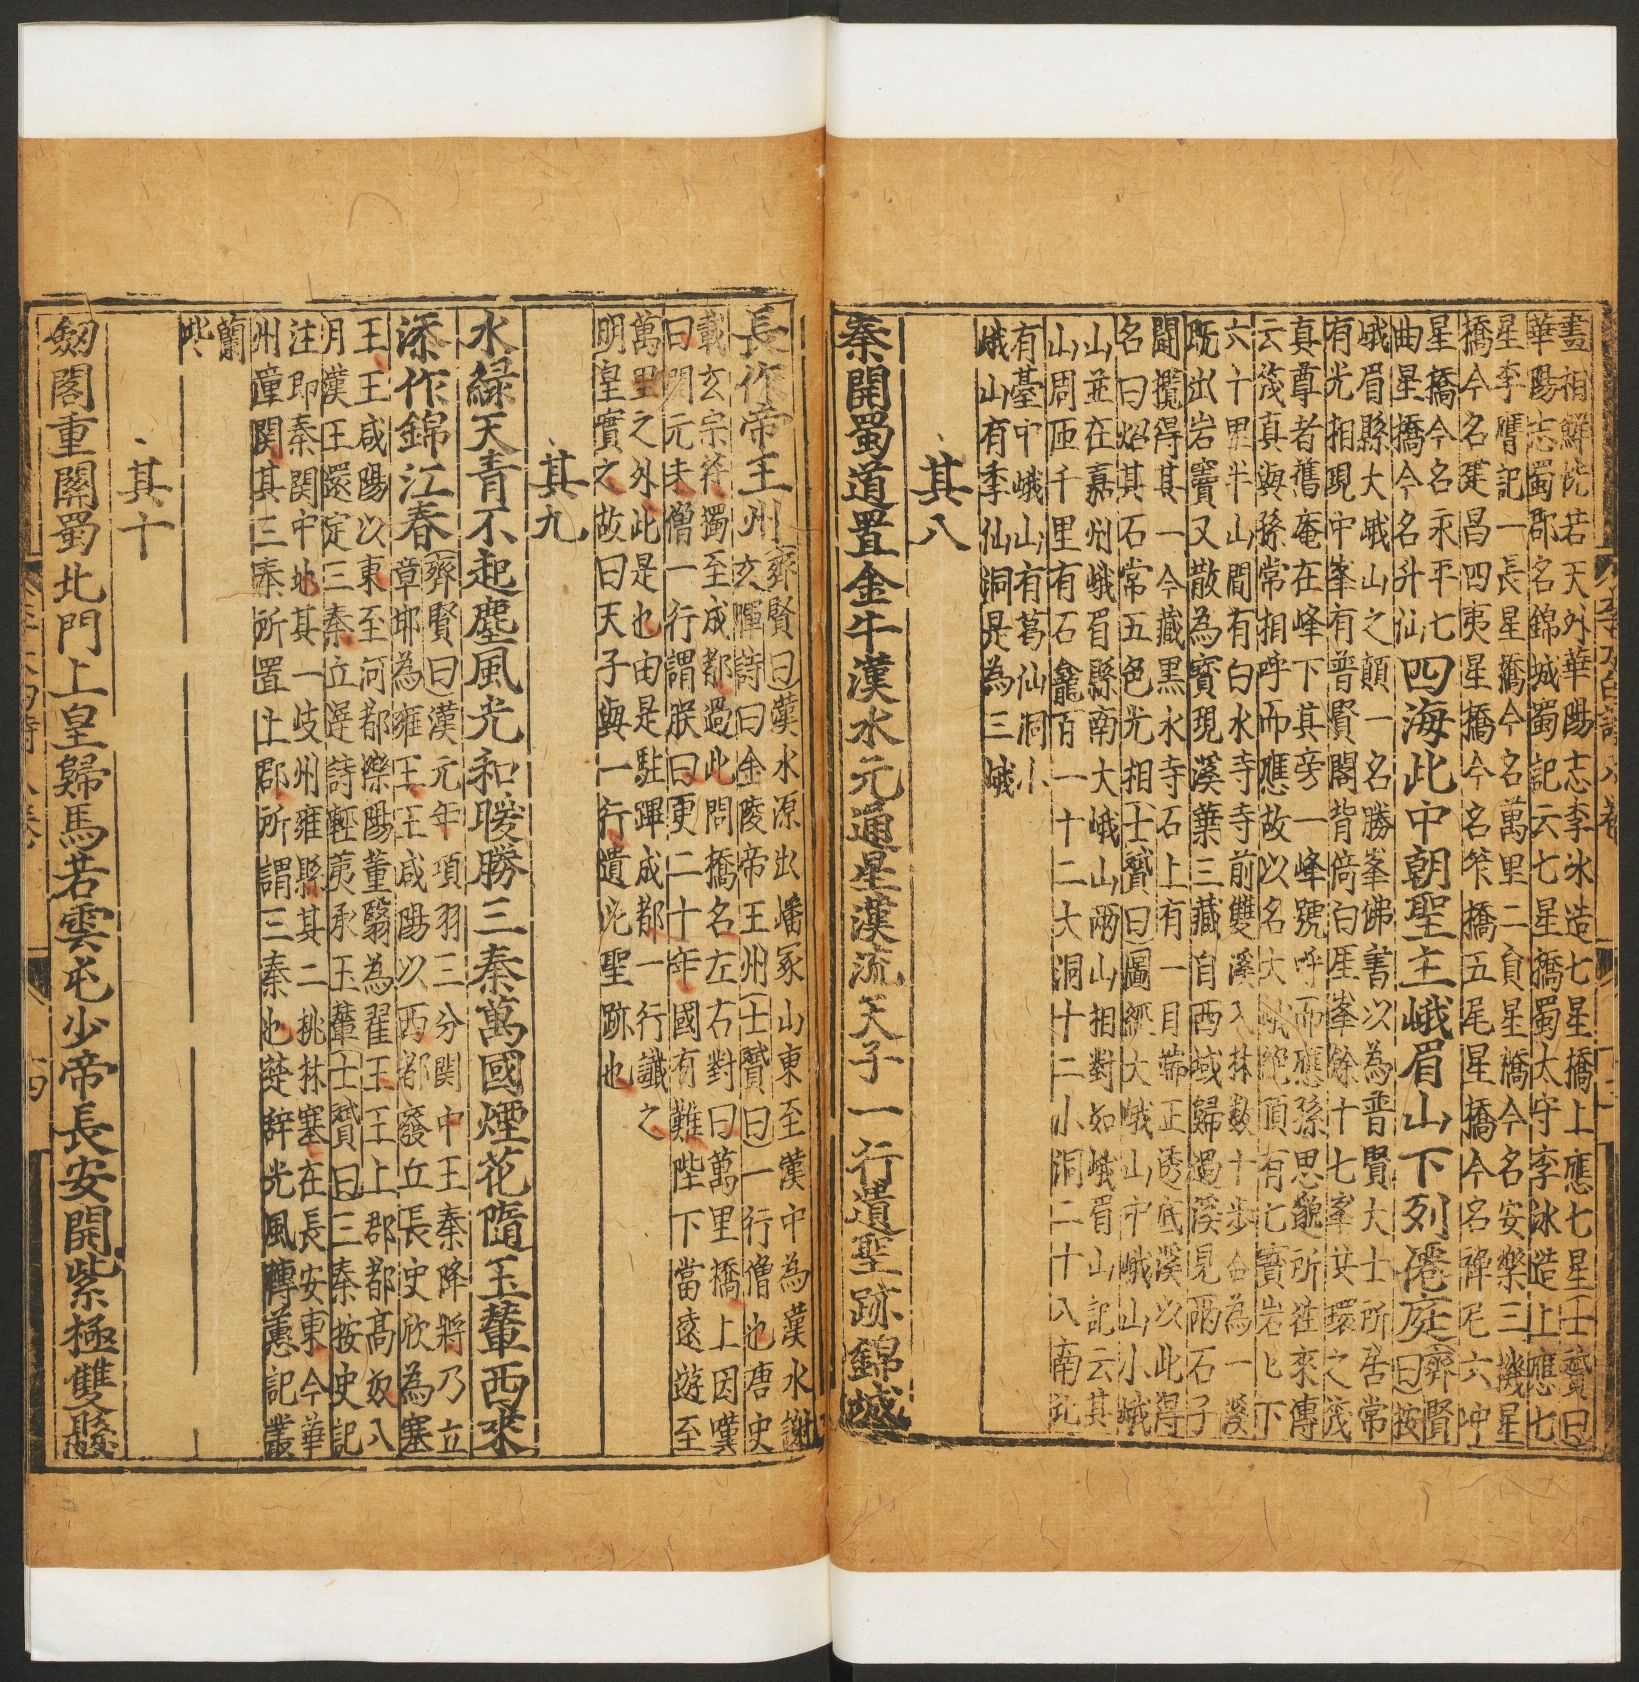 畫相鮮洗若天外華陽志李冰造七星橋上應七星士贇曰
華陽志蜀郡名錦城蜀記云七星橋蜀太守李冰造上應七
星李膺記一長星橋今名萬里二負星橋今名安樂三機星
橋今名建昌四夷星橋今名笮橋五尾星橋今名禆尼六冲
星橋今名永平七
曲星橋今名升仙
四海此中朝聖主峨眉山下列僊庭
齊賢
曰按
峨眉縣大峨山之顛一名勝峯佛書以為普賢大士所居常
有光相現中峯有普賢閣背倚白崖峯餘十七峯其環之茂
真尊者舊庵在峰下其旁一峰號呼而應孫思邈所往來傳
云茂真與孫常相呼而應故以名大峨絶頂有七寶岩七下
六十里半山間有白水寺寺前雙溪入林數十步合為一溪
既出岩竇又散為寶現溪藥三藏自西域歸過溪見兩石子
鬬攬得其一今藏黑水寺石上有一目端正透底溪以此得
名曰炤其石常五色光相士贇曰圖經大峨山中峨山小峨
山並在嘉州峨眉縣南大峨山兩山相對如峨眉山記云其
山周匝千里有石龕百一十二大洞十二小洞二十八南北
有臺中峨山有葛仙洞小
峨山有李仙洞是為三峨
其八
秦開蜀道置金牛漢水元通星漢流天子一行遺聖跡錦城
長作帝王州
齊賢曰漢水源出嶓冢山東至漢中為漢水謝
玄暉詩曰金陵帝王州士贇曰一行僧也唐史
載玄宗狩獨至成都過此問橋名左右對曰萬里橋上因嘆
曰開元末僧一行謂朕曰更二十年國有難陛下當遠遊至
萬里之外此是也由是駐蹕成都一行讖之
明皇實之故曰天子與一行遺此聖跡也
其九
水綠天青不起塵風光和暖勝三秦萬國煙花隨玉輦西來
添作錦江春
齊賢曰漢元年項羽三分関中王秦降將乃立
章邯為雍王王咸陽以西都廢丘長史欣為塞
王王咸陽以東至河都櫟陽董翳為翟王王上郡都高奴八
月漢王還定三秦立選詩輕荑承玉輦士贇曰三秦按史記
注即秦関中地其一岐州雍縣其二桃林塞在長安東今華
州潼関其三秦所置上郡所謂三秦也楚辭光風轉蕙記叢
蘭
些
其十
劒閣重關蜀北門上皇歸馬若雲屯少帝長安開紫極雙懸